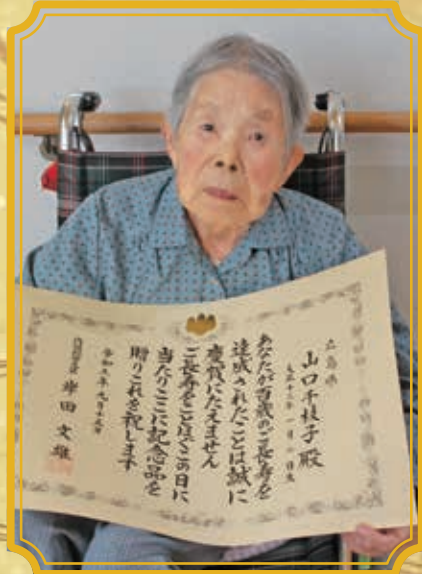 広島県
山口千枝子殿
大正十三年一月 日生
あなたが百歳のご長寿を
達成されたことは誠に
慶賀にたえません
ご長寿をことほぐこの日に
当たりここに記念品を
贈りこれを祝します
令和五年九月十五日
内閣総理大臣 岸田文雄